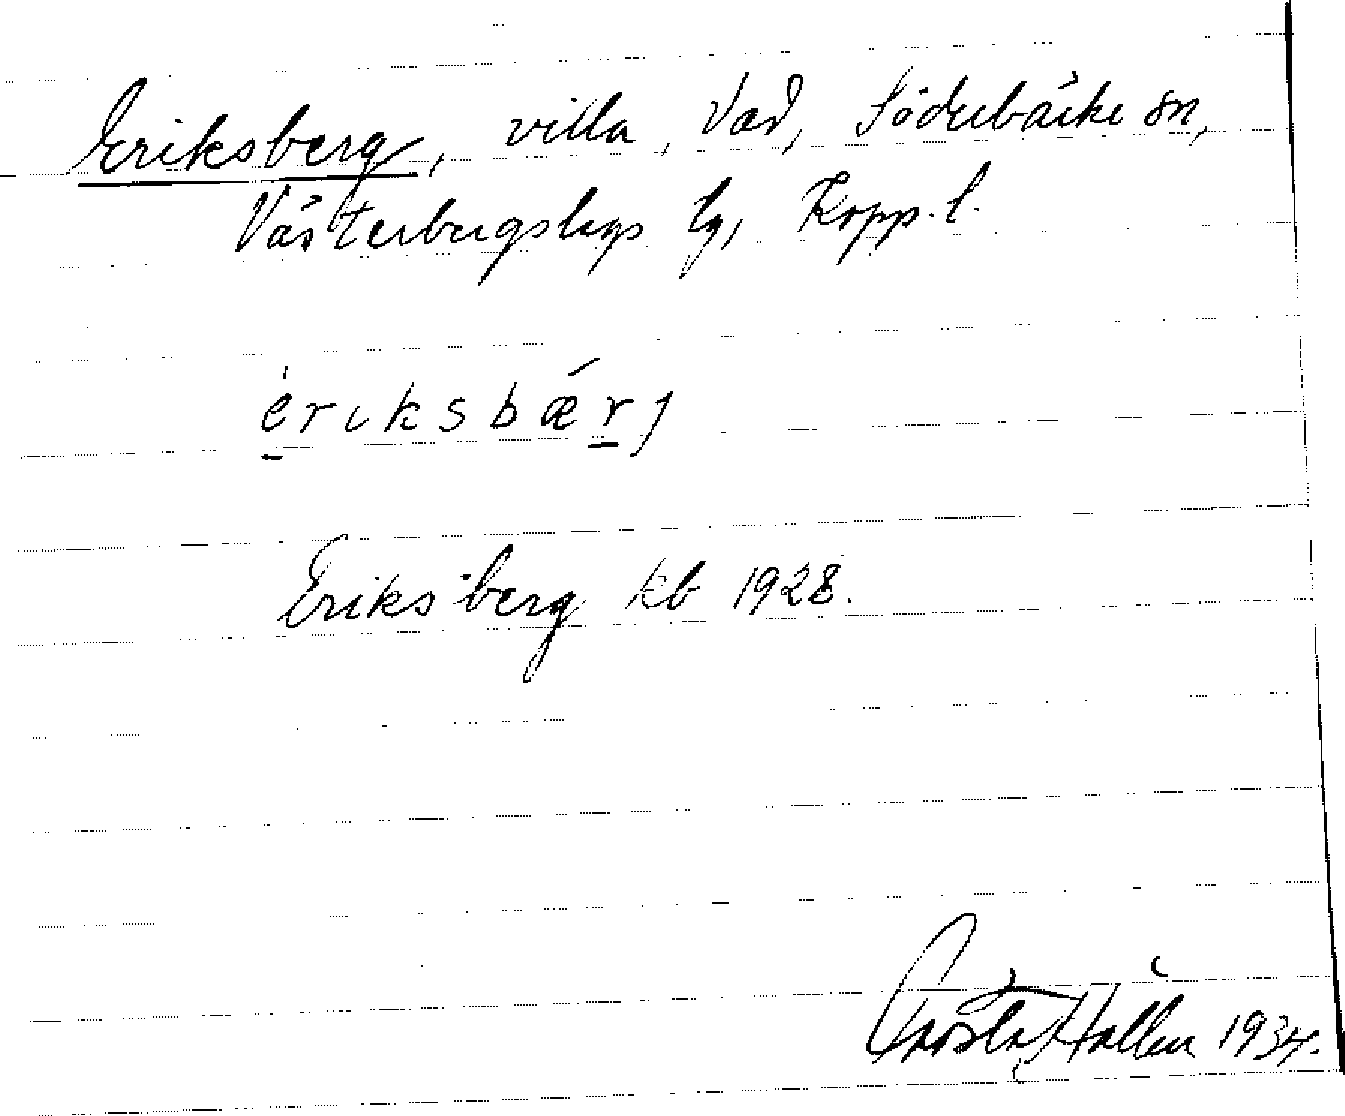 Eriksberg, villa, Vad, Söderbärke sn,
Västerbergslags tg, Kopp. l.
ériksbǽrj
Eriksberg kb 1928.
Gösta Hallén 1934.